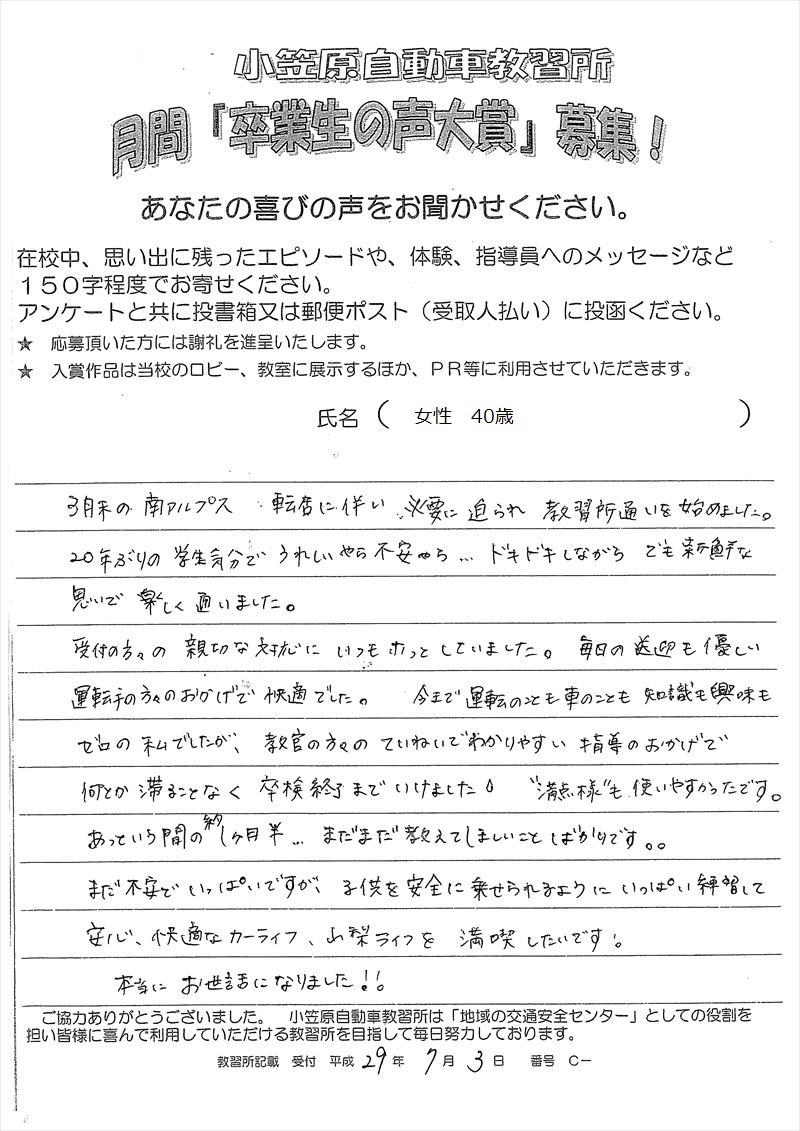 小笠原自動車教習所
月間「卒業生の声大賞」募集！
あなたの喜びの声をお聞かせください。
在校中、思い出に残ったエピソードや、体験、指導員へのメッセージなど
１５０字程度でお寄せください。
アンケートと共に投書箱又は郵便ポスト（受取人払い）に投函ください。
★　応募頂いた方には謝礼を進呈いたします。
★　入賞作品は当校のロビー、教室に展示するほか、ＰＲ等に利用させていただきます。
氏名（　女性　40歳　）
3月末の南アルプス　転居に伴い 必要に迫られ 教習所通いを始めました。
20年ぶりの学生気分で うれしいやら不安やら… ドキドキしながら でも新鮮な
思いで 楽しく通いました。
受付の方々の 親切な対応に いつもホッとしていました。 毎日の送迎も優しい
運転手の方々のおかげで快適でした。 今まで運転のことも車のことも 知識も興味も
ゼロの私でしたが、教官の方々の ていねいでわかりやすい 指導のおかげで
何とか滞ることなく 卒検終了までいけました! “満点様”も使いやすかったです。
あっという間の約1ヶ月半… まだまだ教えてほしいことばかりです。。
まだ不安でいっぱいですが、子供を安全に乗せられるように いっぱい練習して
安心、快適なカーライフ、山梨ライフを 満喫したいです!
本当に お世話になりました!!
ご協力ありがとうございました。　小笠原自動車教習所は「地域の交通安全センター」としての役割を
担い皆様に喜んで利用していただける教習所を目指して毎日努力しております。
教習所記載　受付　平成 29 年 7 月 3 日　番号　Ｃ－